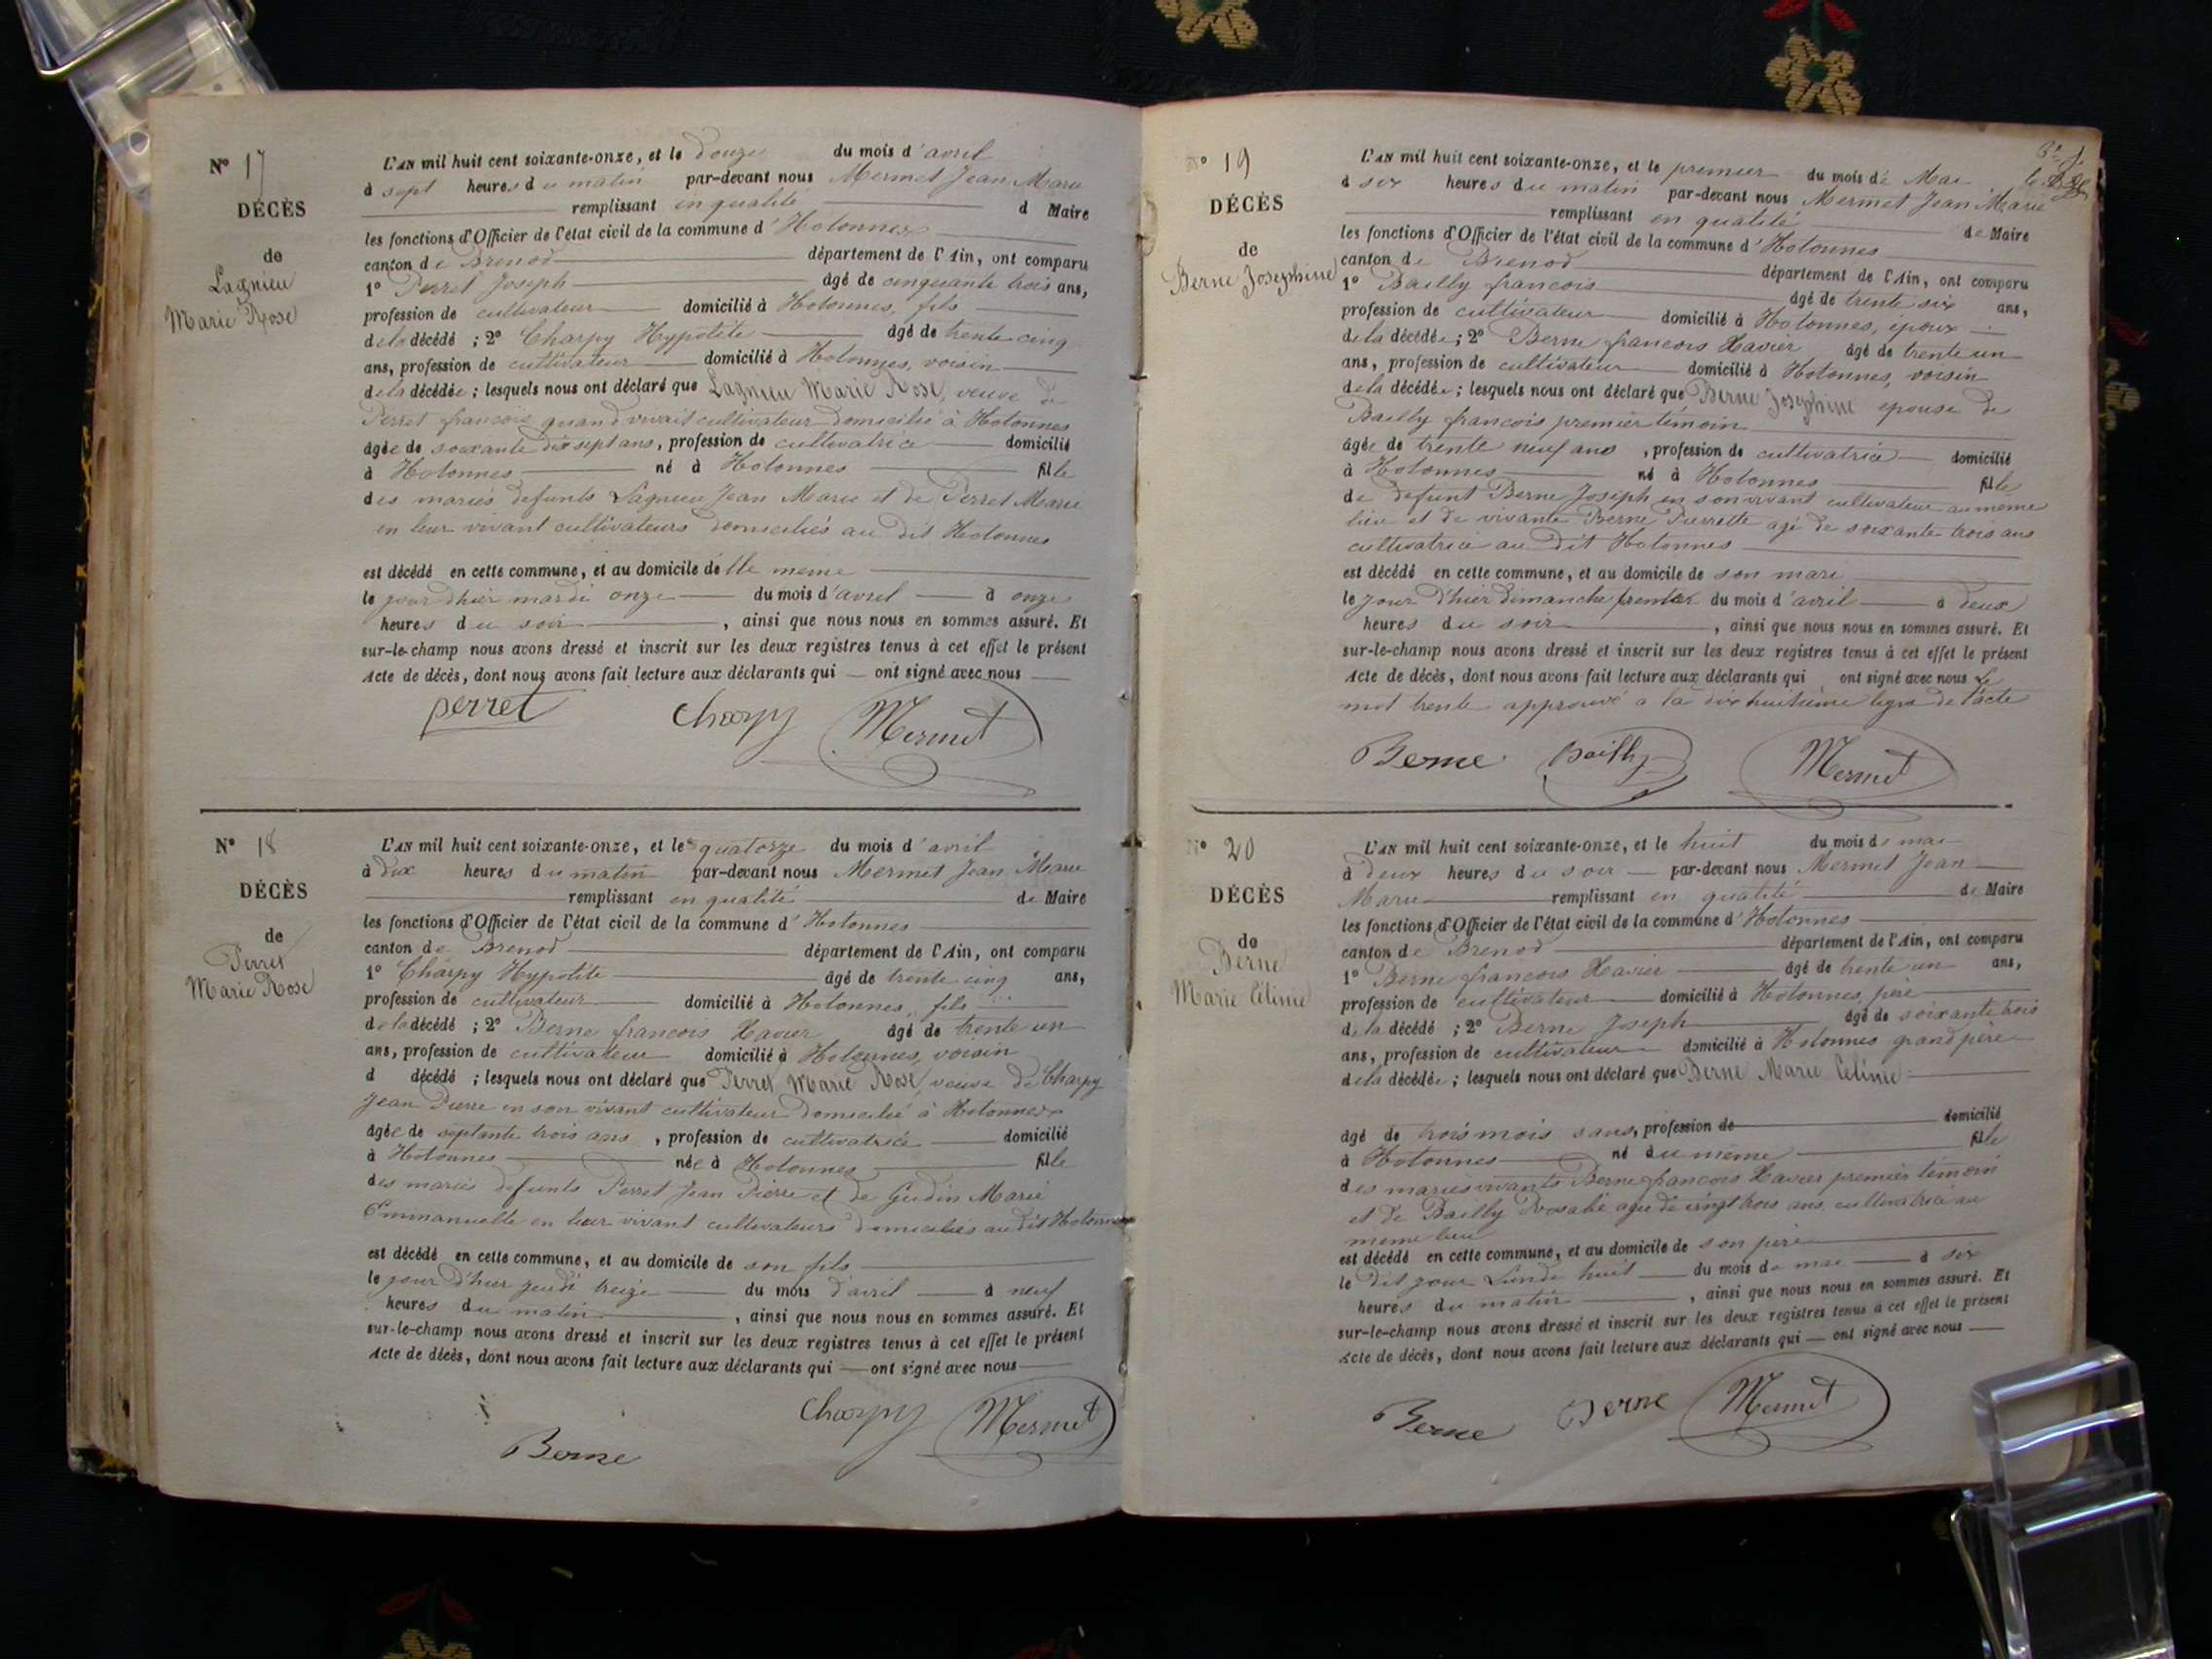 N° 17
DÉCÈS
de
Lagnieu
Marie Rose
L'AN mil huit cent soixante-onze, et le douze du mois d'avril
à sept heures du matin par-devant nous Mermet Jean Marie
remplissant en qualité d Maire
les fonctions d'Officier de l'état civil de la commune d'Hotonnes
canton de Brenod département de l'Ain, ont comparu
1° Perret Joseph âgé de cinquante trois ans,
profession de cultivateur domicilié à Hotonnes, fils
de la décédé ; 2° Charpy Hypolite âgé de trente cinq
ans, profession de cultivateur domicilié à Hotonnes, voisin
de la décédée ; lesquels nous ont déclaré que Lagnieu Marie Rose, veuve de
Perret françois quand vivait cultivateur domicilié à Hotonnes
âgée de soixante dix sept ans, profession de cultivatrice domicilié
à Hotonnes né à Hotonnes fille
des mariés defunts Lagnieu Jean Marie et de Perret Marie
en leur vivant cultivateurs domiciliés au dit Hotonnes
est décédé en cette commune, et au domicile de elle meme
le jour d'hier mardi onze du mois d'avril à onze
heures du soir , ainsi que nous nous en sommes assuré. Et
sur-le-champ nous avons dressé et inscrit sur les deux registres tenus à cet effet le présent
Acte de décès, dont nous avons fait lecture aux déclarants qui ont signé avec nous
perret Charpy Mermet
N° 18
DÉCÈS
de
Perret
Marie Rose
L'AN mil huit cent soixante-onze, et le quatorze du mois d'avril
à dix heures du matin par-devant nous Mermet Jean Marie
remplissant en qualité de Maire
les fonctions d'Officier de l'état civil de la commune d'Hotonnes
canton de Brenod département de l'Ain, ont comparu
1° Charpy Hypolite âgé de trente cinq ans,
profession de cultivateur domicilié à Hotonnes, fils
de la décédé ; 2° Berne francois Xavier âgé de trente un
ans, profession de cultivateur domicilié à Hotonnes, voisin
d décédé ; lesquels nous ont déclaré que Perret Marie Rose, veuve de Charpy
Jean Pierre en son vivant cultivateur domicilié à Hotonnes
âgée de septante trois ans , profession de cultivatrice domicilié
à Hotonnes née à Hotonnes fille
des mariés defunts Perret Jean Pierre et de Gudin Marie
Emmanuelle en leur vivant cultivateurs domiciliés au dit Hotonnes
est décédé en cette commune, et au domicile de son fils
le jour d'hier jeudi treize du mois d'avril à neuf
heures du matin , ainsi que nous nous en sommes assuré. Et
sur-le-champ nous avons dressé et inscrit sur les deux registres tenus à cet effet le présent
Acte de décès, dont nous avons fait lecture aux déclarants qui ont signé avec nous
Charpy Mermet
Berne
N° 19
DÉCÈS
de
Berne Josephine
L'AN mil huit cent soixante-onze, et le premier du mois de Mai
à six heures du matin par-devant nous Mermet Jean Marie
remplissant en qualité de Maire
les fonctions d'Officier de l'état civil de la commune d'Hotonnes
canton de Brenod département de l'Ain, ont comparu
1° Bailly francois âgé de trente six ans,
profession de cultivateur domicilié à Hotonnes, époux
de la décédée ; 2° Berne francois Xavier âgé de trente un
ans, profession de cultivateur domicilié à Hotonnes, voisin
de la décédée ; lesquels nous ont déclaré que Berne Josephine epouse de
Bailly francois premier témoin
âgée de trente neuf ans , profession de cultivatrice domicilié
à Hotonnes né à Hotonnes fille
de defunt Berne Joseph en son vivant cultivateur au meme
lieu et de vivante Berne Pierrette agé de soixante trois ans
cultivatrice au dit Hotonnes
est décédé en cette commune, et au domicile de son mari
le jour d'hier dimanche trente du mois d'avril à deux
heures du soir , ainsi que nous nous en sommes assuré. Et
sur-le-champ nous avons dressé et inscrit sur les deux registres tenus à cet effet le présent
Acte de décès, dont nous avons fait lecture aux déclarants qui ont signé avec nous Le
mot trente approuvé a la dix huitième ligne de l'acte
Berne Bailly Mermet
N° 20
DÉCÈS
de
Berne
Marie Céline
L'AN mil huit cent soixante-onze, et le huit du mois de mai
à deux heures du soir par-devant nous Mermet Jean
Marie remplissant en qualité de Maire
les fonctions d'Officier de l'état civil de la commune d'Hotonnes
canton de Brenod département de l'Ain, ont comparu
1° Berne francois Xavier âgé de trente un ans,
profession de cultivateur domicilié à Hotonnes, père
de la décédé ; 2° Berne Joseph âgé de soixante trois
ans, profession de cultivateur domicilié à Hotonnes grand père
de la décédée ; lesquels nous ont déclaré que Berne Marie Céline
âgé de trois mois sans, profession de domicilié
à Hotonnes né au meme fille
des maries vivants Berne francois Xavier premier témoin
et de Bailly Rosalie agée de vingt trois ans cultivatrice au
meme lieu
est décédé en cette commune, et au domicile de son père
le dit jour Lundi huit du mois de mai à six
heures du matin , ainsi que nous nous en sommes assuré. Et
sur-le-champ nous avons dressé et inscrit sur les deux registres tenus à cet effet le présent
Acte de décès, dont nous avons fait lecture aux déclarants qui ont signé avec nous
Berne Berne Mermet